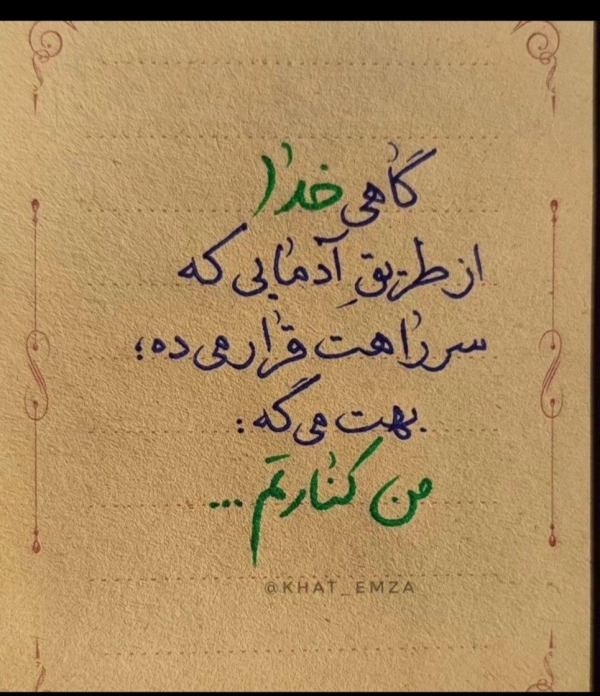 گاهی خدا
از طریقِ آدمایی که
سر راهت قرار می ده؛
بهت می گه:
من کنارتم...
@KHAT_EMZA